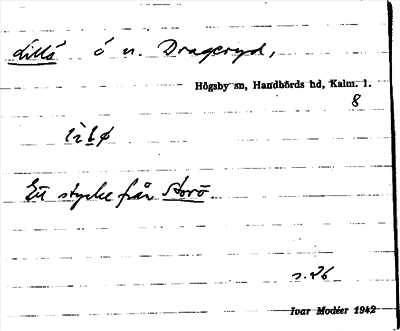 Lillö ö n. Drageryd,
Högsby sn, Handbörds hd, Kalm. l.
8
Ett stycke från Storö
s. 26
Ivar Modéer 1942